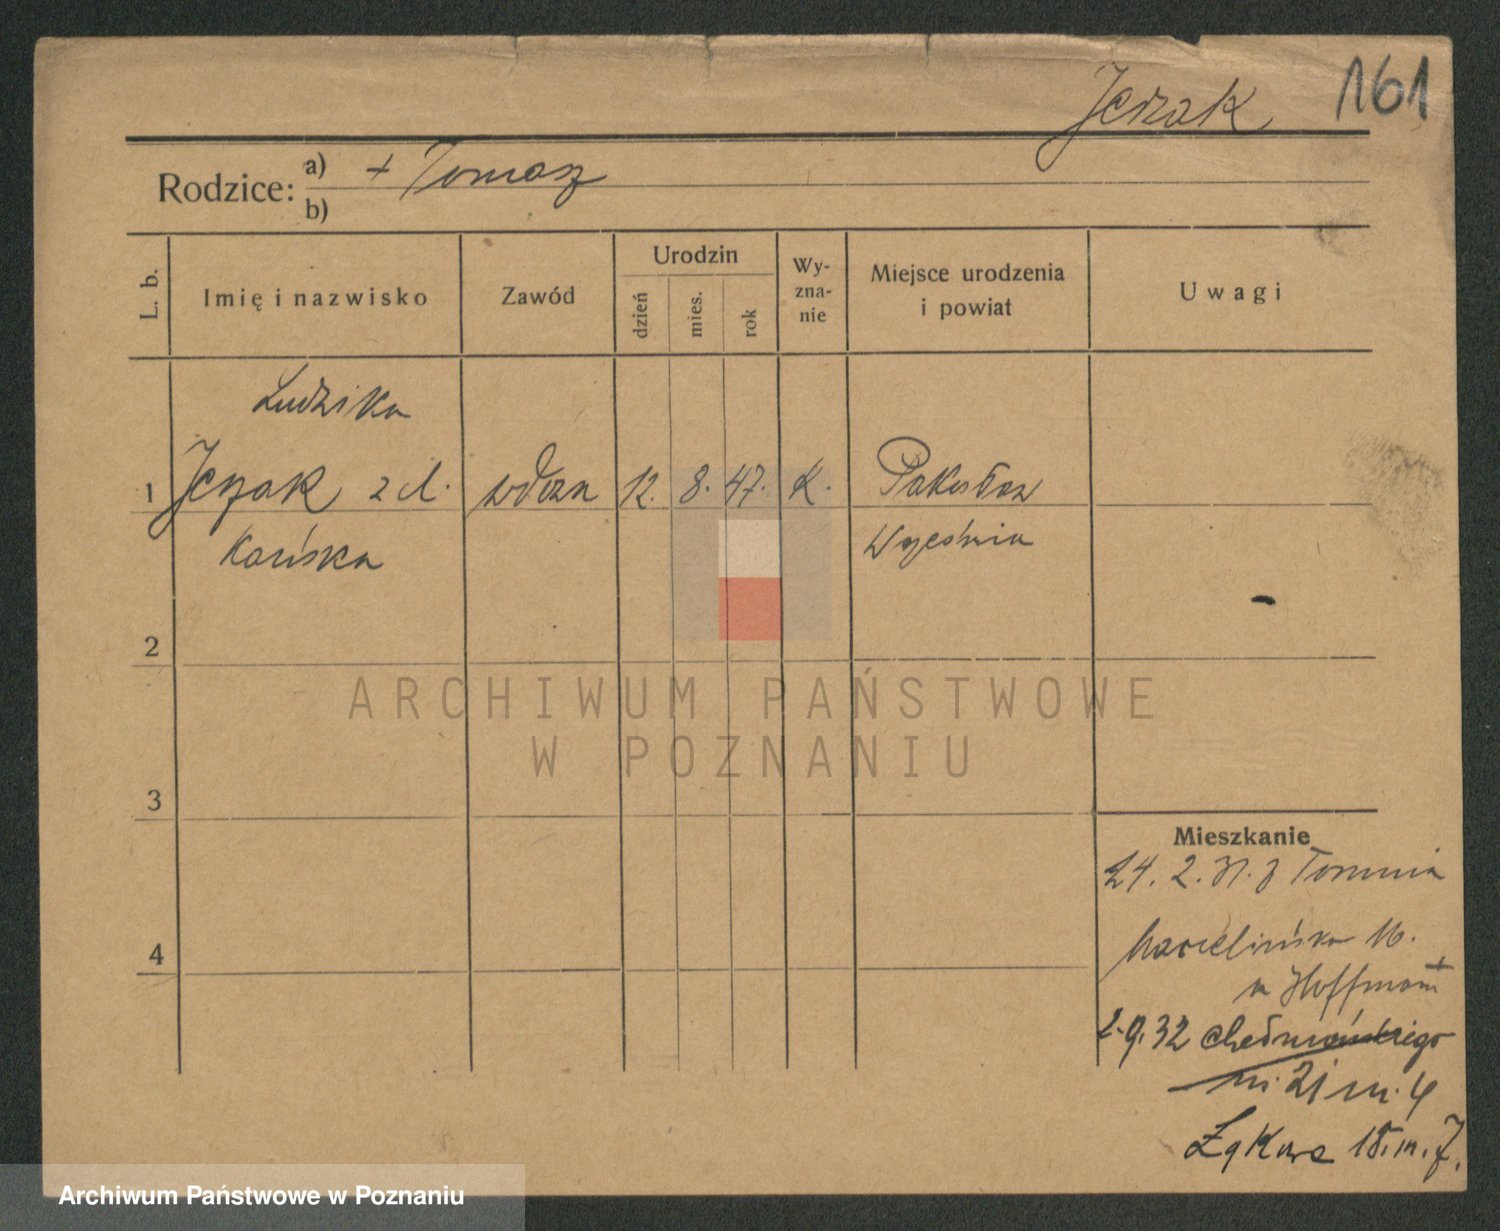 161
Rodzice: a) + Tomasz
b)
L. b.
Imię i nazwisko
Zawód
Urodzin
dzień
mies.
rok
Wy-
zna-
nie
Miejsce urodzenia
i powiat
Uwagi
Ludzika
1 z d. wdowa 12. 8. 47. K. Pakosław
Końska Września
2
3
4
Mieszkanie
24. 2. 31. z Torunia
Marcelińska 16.
u Hoffmann
2.9.32 Chełmońskiego
m. 21 m. 4
Łąkowa 18. m. 7.
ARCHIWUM PAŃSTWOWE
W POZNANIU
Archiwum Państwowe w Poznaniu